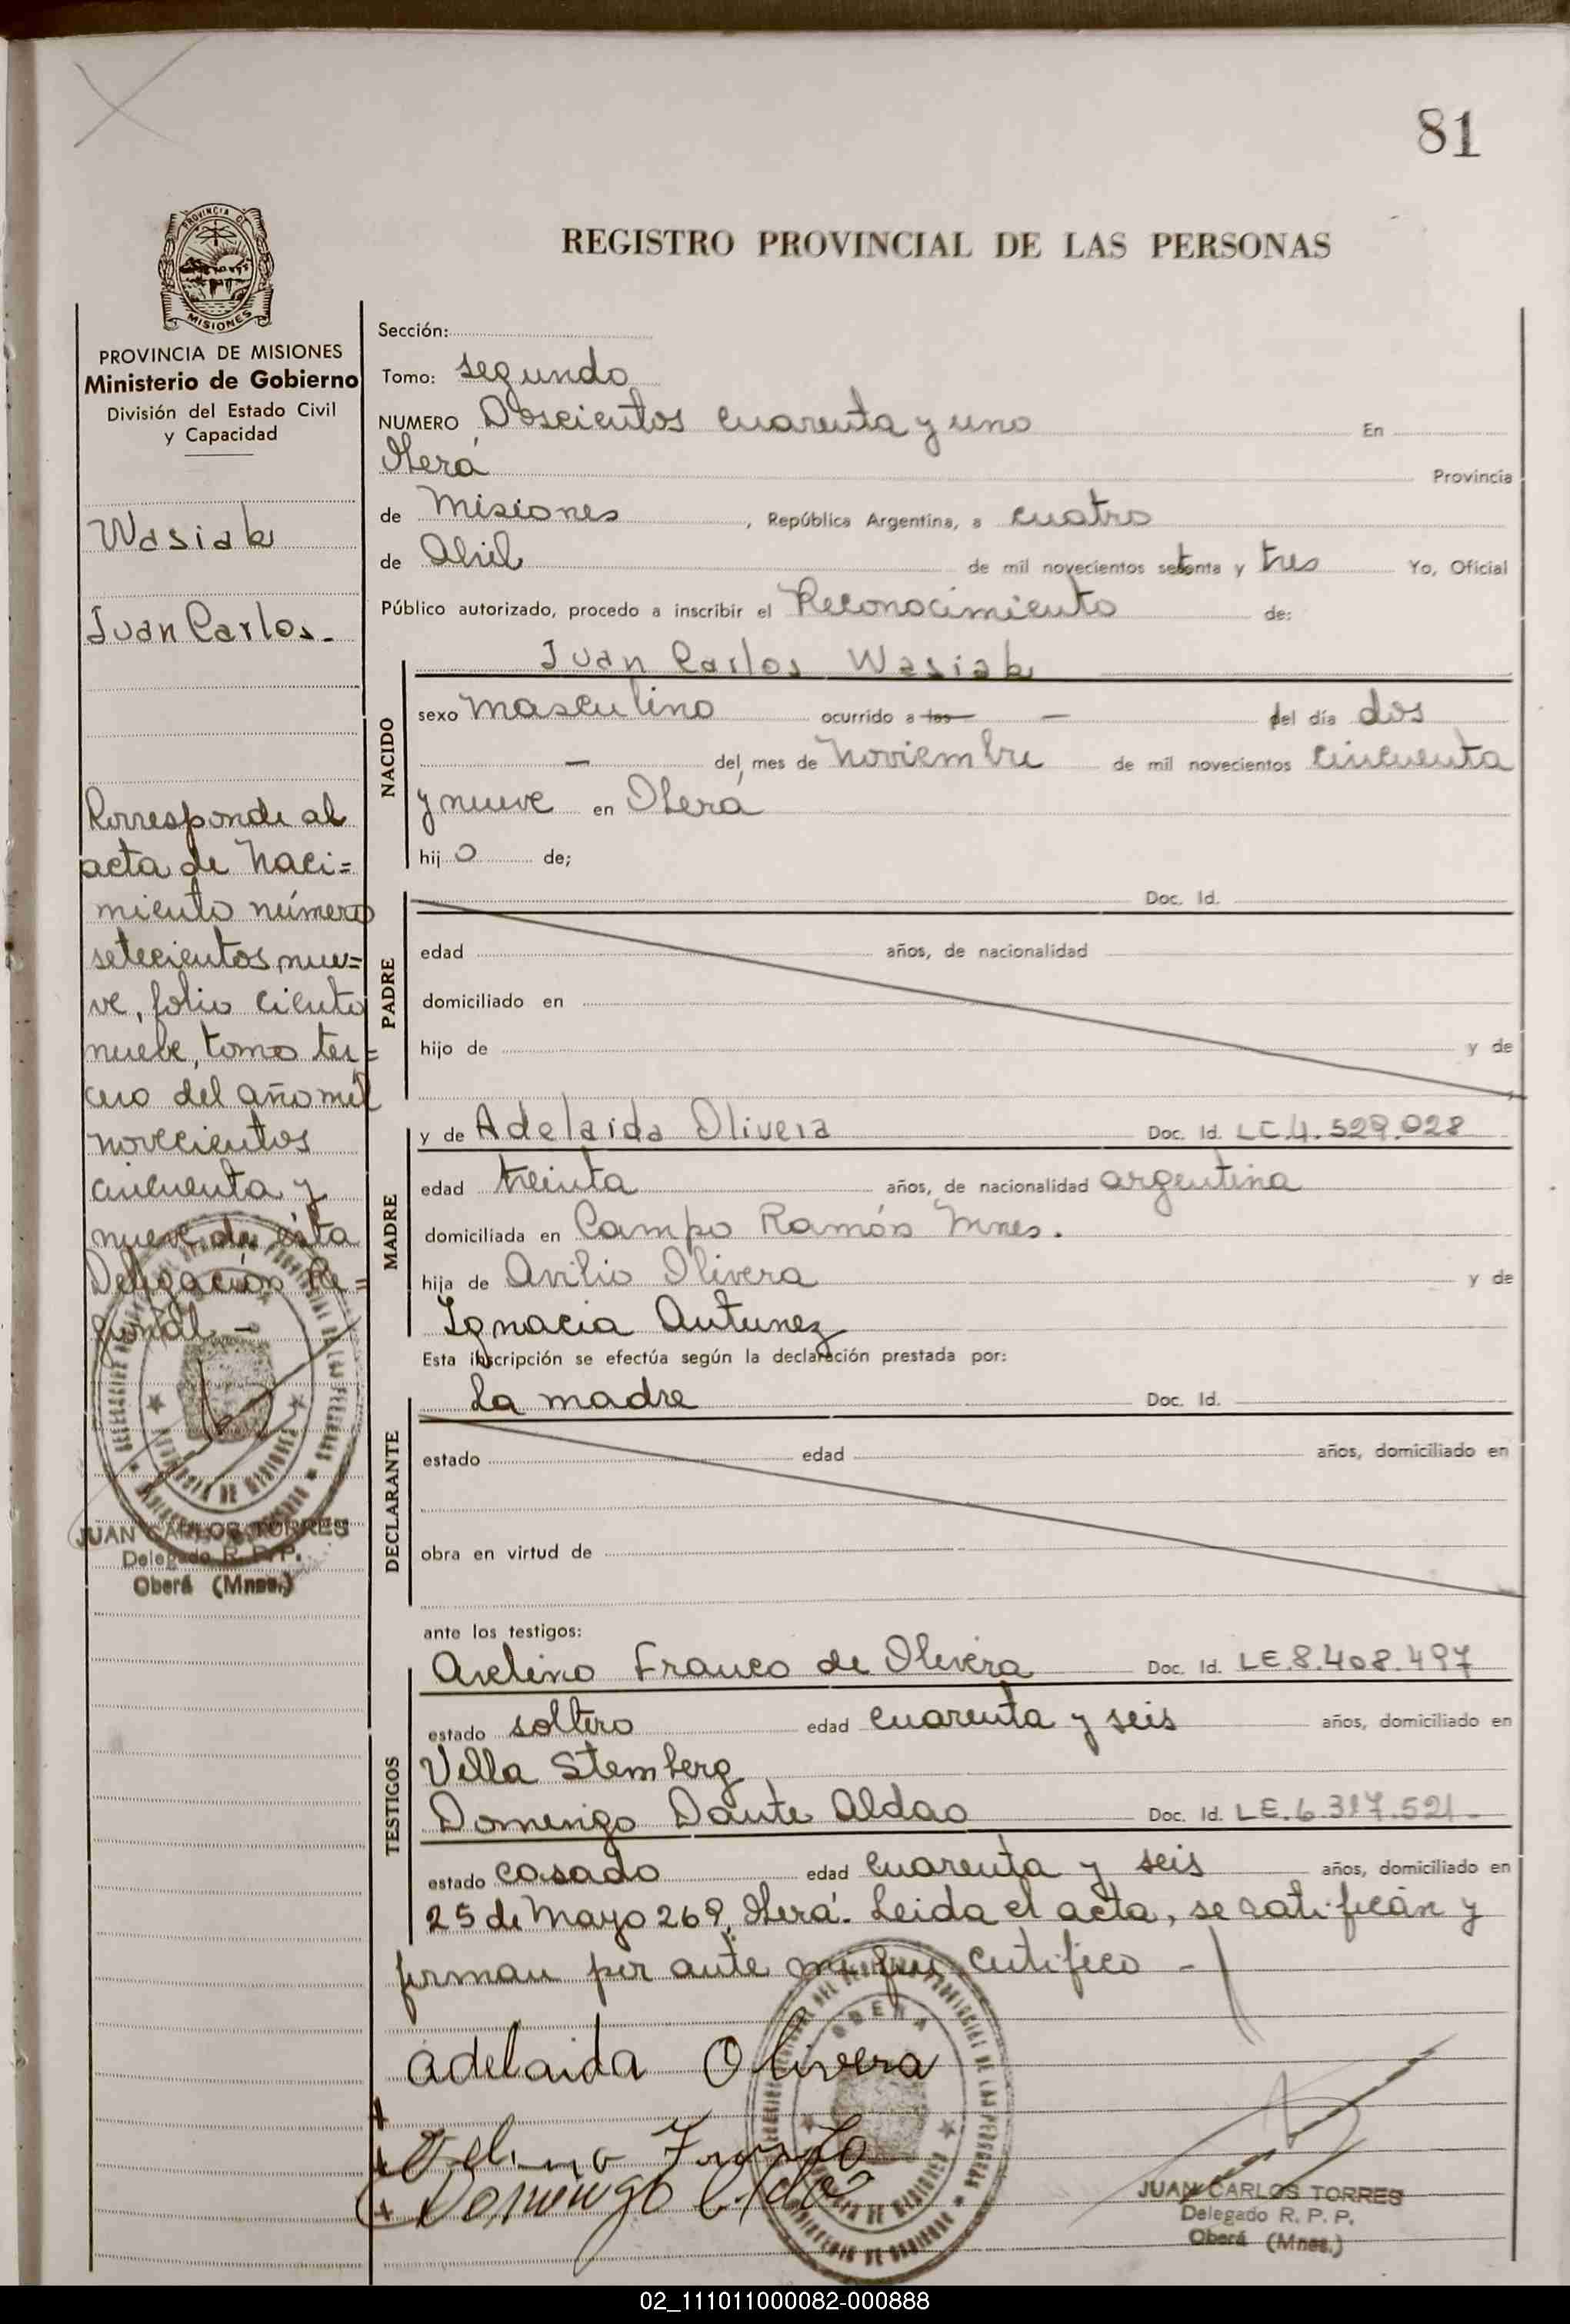 81
REGISTRO PROVINCIAL DE LAS PERSONAS
MISIONES
PROVINCIA DE MISIONES
Ministerio de Gobierno
División del Estado Civil
y Capacidad
Wasiak
Juan Carlos.-
Corresponde al
acta de Naci=
miento número
setecientos nue=
ve, folio ciento
nueve, tomo ter=
cero del año mil
novecientos
cincuenta y
nueve de ésta
Delegación Re=
gional -
JUAN CARLOS TORRES
Delegado R. P. P.
Oberá (Mnes.)
Sección:
Tomo: segundo
NUMERO Doscientos cuarenta y uno En
Oberá Provincia
de Misiones, República Argentina, a cuatro
de Abril de mil novecientos setenta y tres Yo, Oficial
Público autorizado, procedo a inscribir el Reconocimiento de:
Juan Carlos Wasiak
NACIDO
sexo masculino ocurrido a las — del día dos
— del mes de Noviembre de mil novecientos cincuenta
y nueve en Oberá
hijo de;
PADRE
Doc. Id.
edad años, de nacionalidad
domiciliado en
hijo de y de
MADRE
y de Adelaida Olivera Doc. Id. LC.4.529.028
edad treinta años, de nacionalidad argentina
domiciliada en Campo Ramón Mnes.
hija de Avilio Olivera y de
Ignacia Antunez
Esta inscripción se efectúa según la declaración prestada por:
DECLARANTE
La madre Doc. Id.
estado edad años, domiciliado en
obra en virtud de
ante los testigos:
TESTIGOS
Avelino Franco de Olivera Doc. Id. LE.8.408.497
estado soltero edad cuarenta y seis años, domiciliado en
Villa Stemberg
Domingo Dante Aldao Doc. Id. LE.6.317.521.
estado casado edad cuarenta y seis años, domiciliado en
25 de Mayo 269, Oberá. Leida el acta, se ratificán y
firman por ante mí que certifico -
Adelaida Olivera
Avelino Franco
Domingo Aldao
OBERA
JUAN CARLOS TORRES
Delegado R. P. P.
Oberá (Mnes.)
02_111011000082-000888